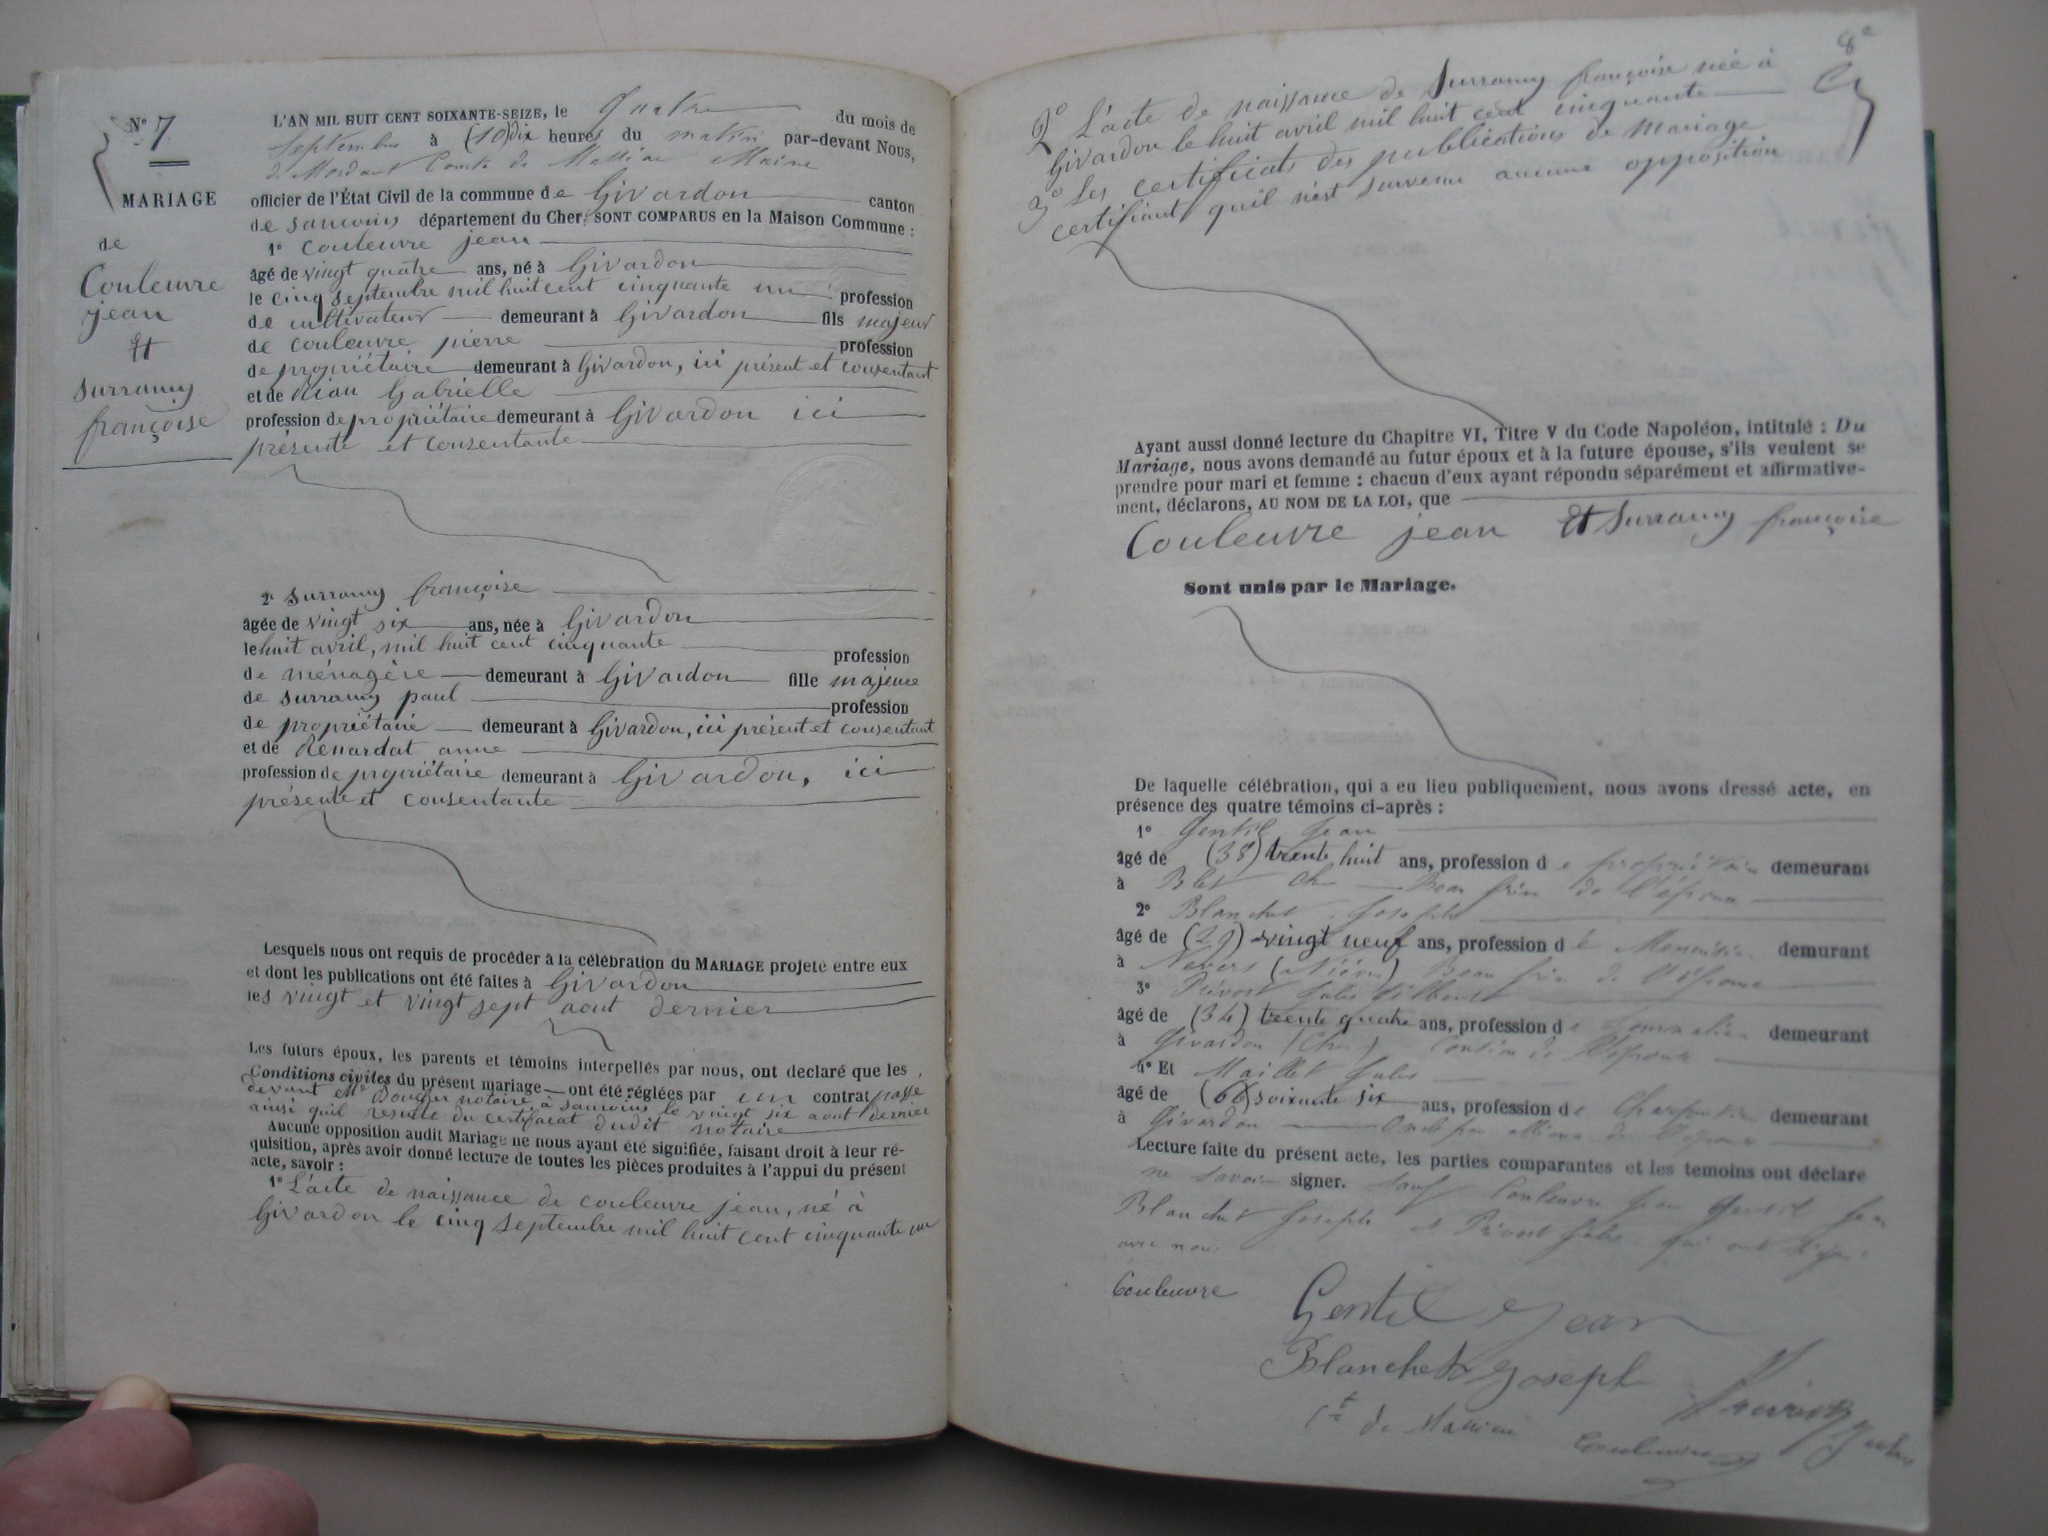 N° 7
MARIAGE
de
Couleuvre
jean
Et
Surramy
françoise
L'AN MIL HUIT CENT SOIXANTE-SEIZE, le Quatre du mois de
Septembre à (10) dix heures du matin par-devant Nous,
de Mordant Comte de Massiac Maire
officier de l'État Civil de la commune de Givardon canton
de Sancoins département du Cher, SONT COMPARUS en la Maison Commune :
1° Couleuvre jean
âgé de vingt quatre ans, né à Givardon
le cinq septembre mil huit cent cinquante un profession
de cultivateur demeurant à Givardon fils majeur
de couleuvre pierre profession
de propriétaire demeurant à Givardon, ici présent et consentant
et de Riau Gabrielle
profession de propriétaire demeurant à Givardon ici
présente et consentante
2° Surramy françoise
âgée de vingt six ans, née à Givardon
le huit avril, mil huit cent cinquante profession
de ménagère demeurant à Givardon fille majeure
de Surramy paul profession
de propriétaire demeurant à Givardon, ici présent et consentant
et de Renardat anne
profession de propriétaire demeurant à Givardon, ici
présente et consentante
Lesquels nous ont requis de procéder à la célébration du MARIAGE projeté entre eux
et dont les publications ont été faites à Givardon
les vingt et vingt sept aout dernier
Les futurs époux, les parents et témoins interpellés par nous, ont declaré que les
Conditions civiles du présent mariage ont été réglées par un contrat passé
devant Me notaire à Sancoins le vingt six aout dernier
ainsi quil resulte du certificat dudit notaire
Aucune opposition audit Mariage ne nous ayant été signifiée, faisant droit à leur ré-
quisition, après avoir donné lecture de toutes les pièces produites à l'appui du présent
acte, savoir :
1° L'acte de naissance de couleuvre jean, né à
Givardon le cinq septembre mil huit cent cinquante un
8e
2° L'acte de naissance de Surramy françoise née à
Givardon le huit avril mil huit cent cinquante
3° Les certificats des publications de mariage
certifiant qu'il n'est survenu aucune opposition
Ayant aussi donné lecture du Chapitre VI, Titre V du Code Napoléon, intitulé : Du
Mariage, nous avons demandé au futur époux et à la future épouse, s'ils veulent se
prendre pour mari et femme : chacun d'eux ayant répondu séparément et affirmative-
ment, déclarons, AU NOM DE LA LOI, que
Couleuvre jean Et Surramy françoise
Sont unis par le Mariage.
De laquelle célébration, qui a eu lieu publiquement, nous avons dressé acte, en
présence des quatre témoins ci-après :
1° Gentil Jean
âgé de (38) trente huit ans, profession de propriétaire demeurant
à Blet Cher Beau frère de l'époux
2° Blanchet Joseph
âgé de (29) vingt neuf ans, profession de Menuisier demurant
à Nevers (Nièvre) Beau frère de l'épouse
3° Prévost Jules Gilbert
âgé de (34) trente quatre ans, profession de Journalier demeurant
à Givardon (Cher) Cousin de l'épouse
4° Et Maillet Jules
âgé de (66) soixante six ans, profession de Charpentier demeurant
à Givardon Oncle par alliance de l'épouse
Lecture faite du présent acte, les parties comparantes et les temoins ont déclaré
ne savoir signer. Sauf Couleuvre Jean Gentil Jean
Blanchet Joseph et Prévost Jules qui ont signé
avec nous
Couleuvre
Gentil Jean
Blanchet Joseph
Prévost Jules
Cte de Massiac
Couleuvre